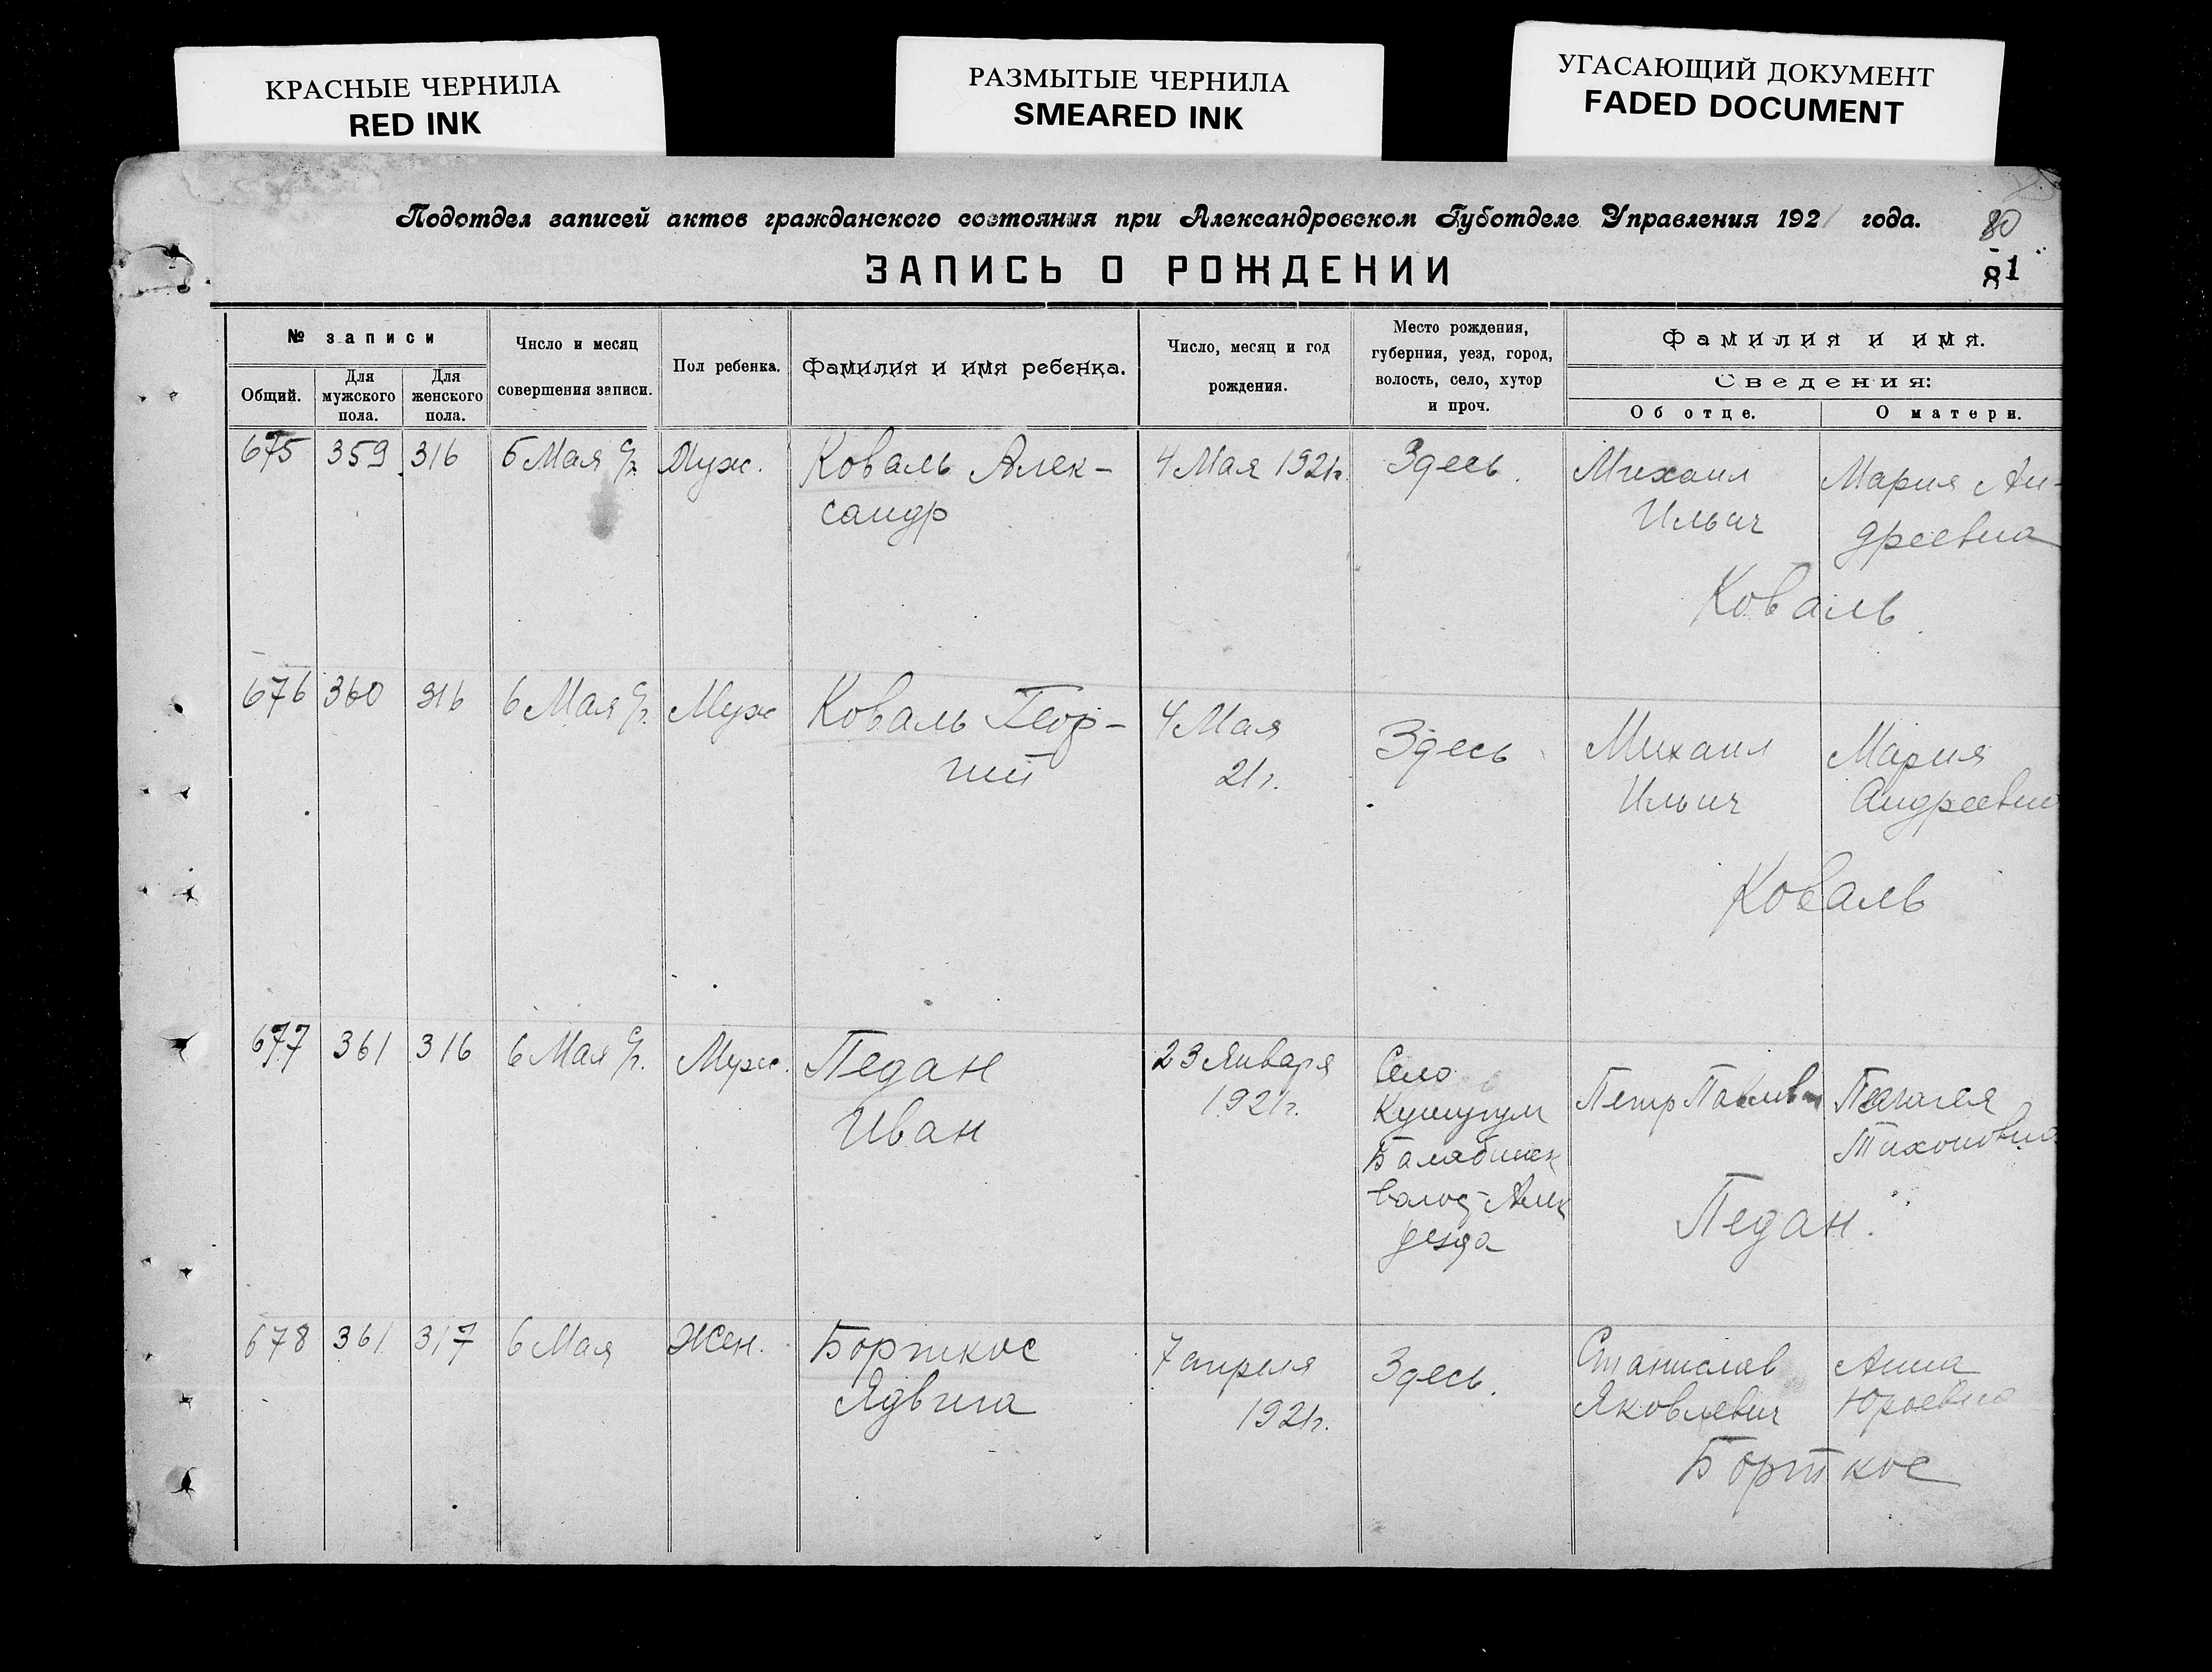 КРАСНЫЕ ЧЕРНИЛА
RED INK
РАЗМЫТЫЕ ЧЕРНИЛА
SMEARED INK
УГАСАЮЩИЙ ДОКУМЕНТ
FADED DOCUMENT
Подотдел записей актов гражданского состояния при Александровском Губотделе Управления 1921 года.
80
81
ЗАПИСЬ О РОЖДЕНИИ
№ записи
Общий.
Для мужского пола.
Для женского пола.
Число и месяц
совершения записи.
Пол ребенка.
Фамилия и имя ребенка.
Число, месяц и год
рождения.
Место рождения,
губерния, уезд, город,
волость, село, хутор
и проч.
Фамилия и имя.
Сведения:
Об отце.
О матери.
675 359 316 6 Мая Муж. Коваль Алек- 4 Мая 1921г. Здесь. Михаил Мария Ан-
сандр Ильич дреевна
Коваль
676 360 316 6 Мая Муж Коваль Геор- 4 Мая Здесь Михаил Мария
гий 21г. Ильич Андреевна
Коваль
677 361 316 6 Мая Муж. Педан 23 Января Село Петр Пелагея
Иван 1921г. Кушугум Тихоновна
Балабинск
волос Алек
уезда
Педан.
678 361 317 6 Мая Жен. Борткос 7 апреля Здесь. Станислав Анна
Ядвига 1921г. Яковлевич Юрьевна
Борткос